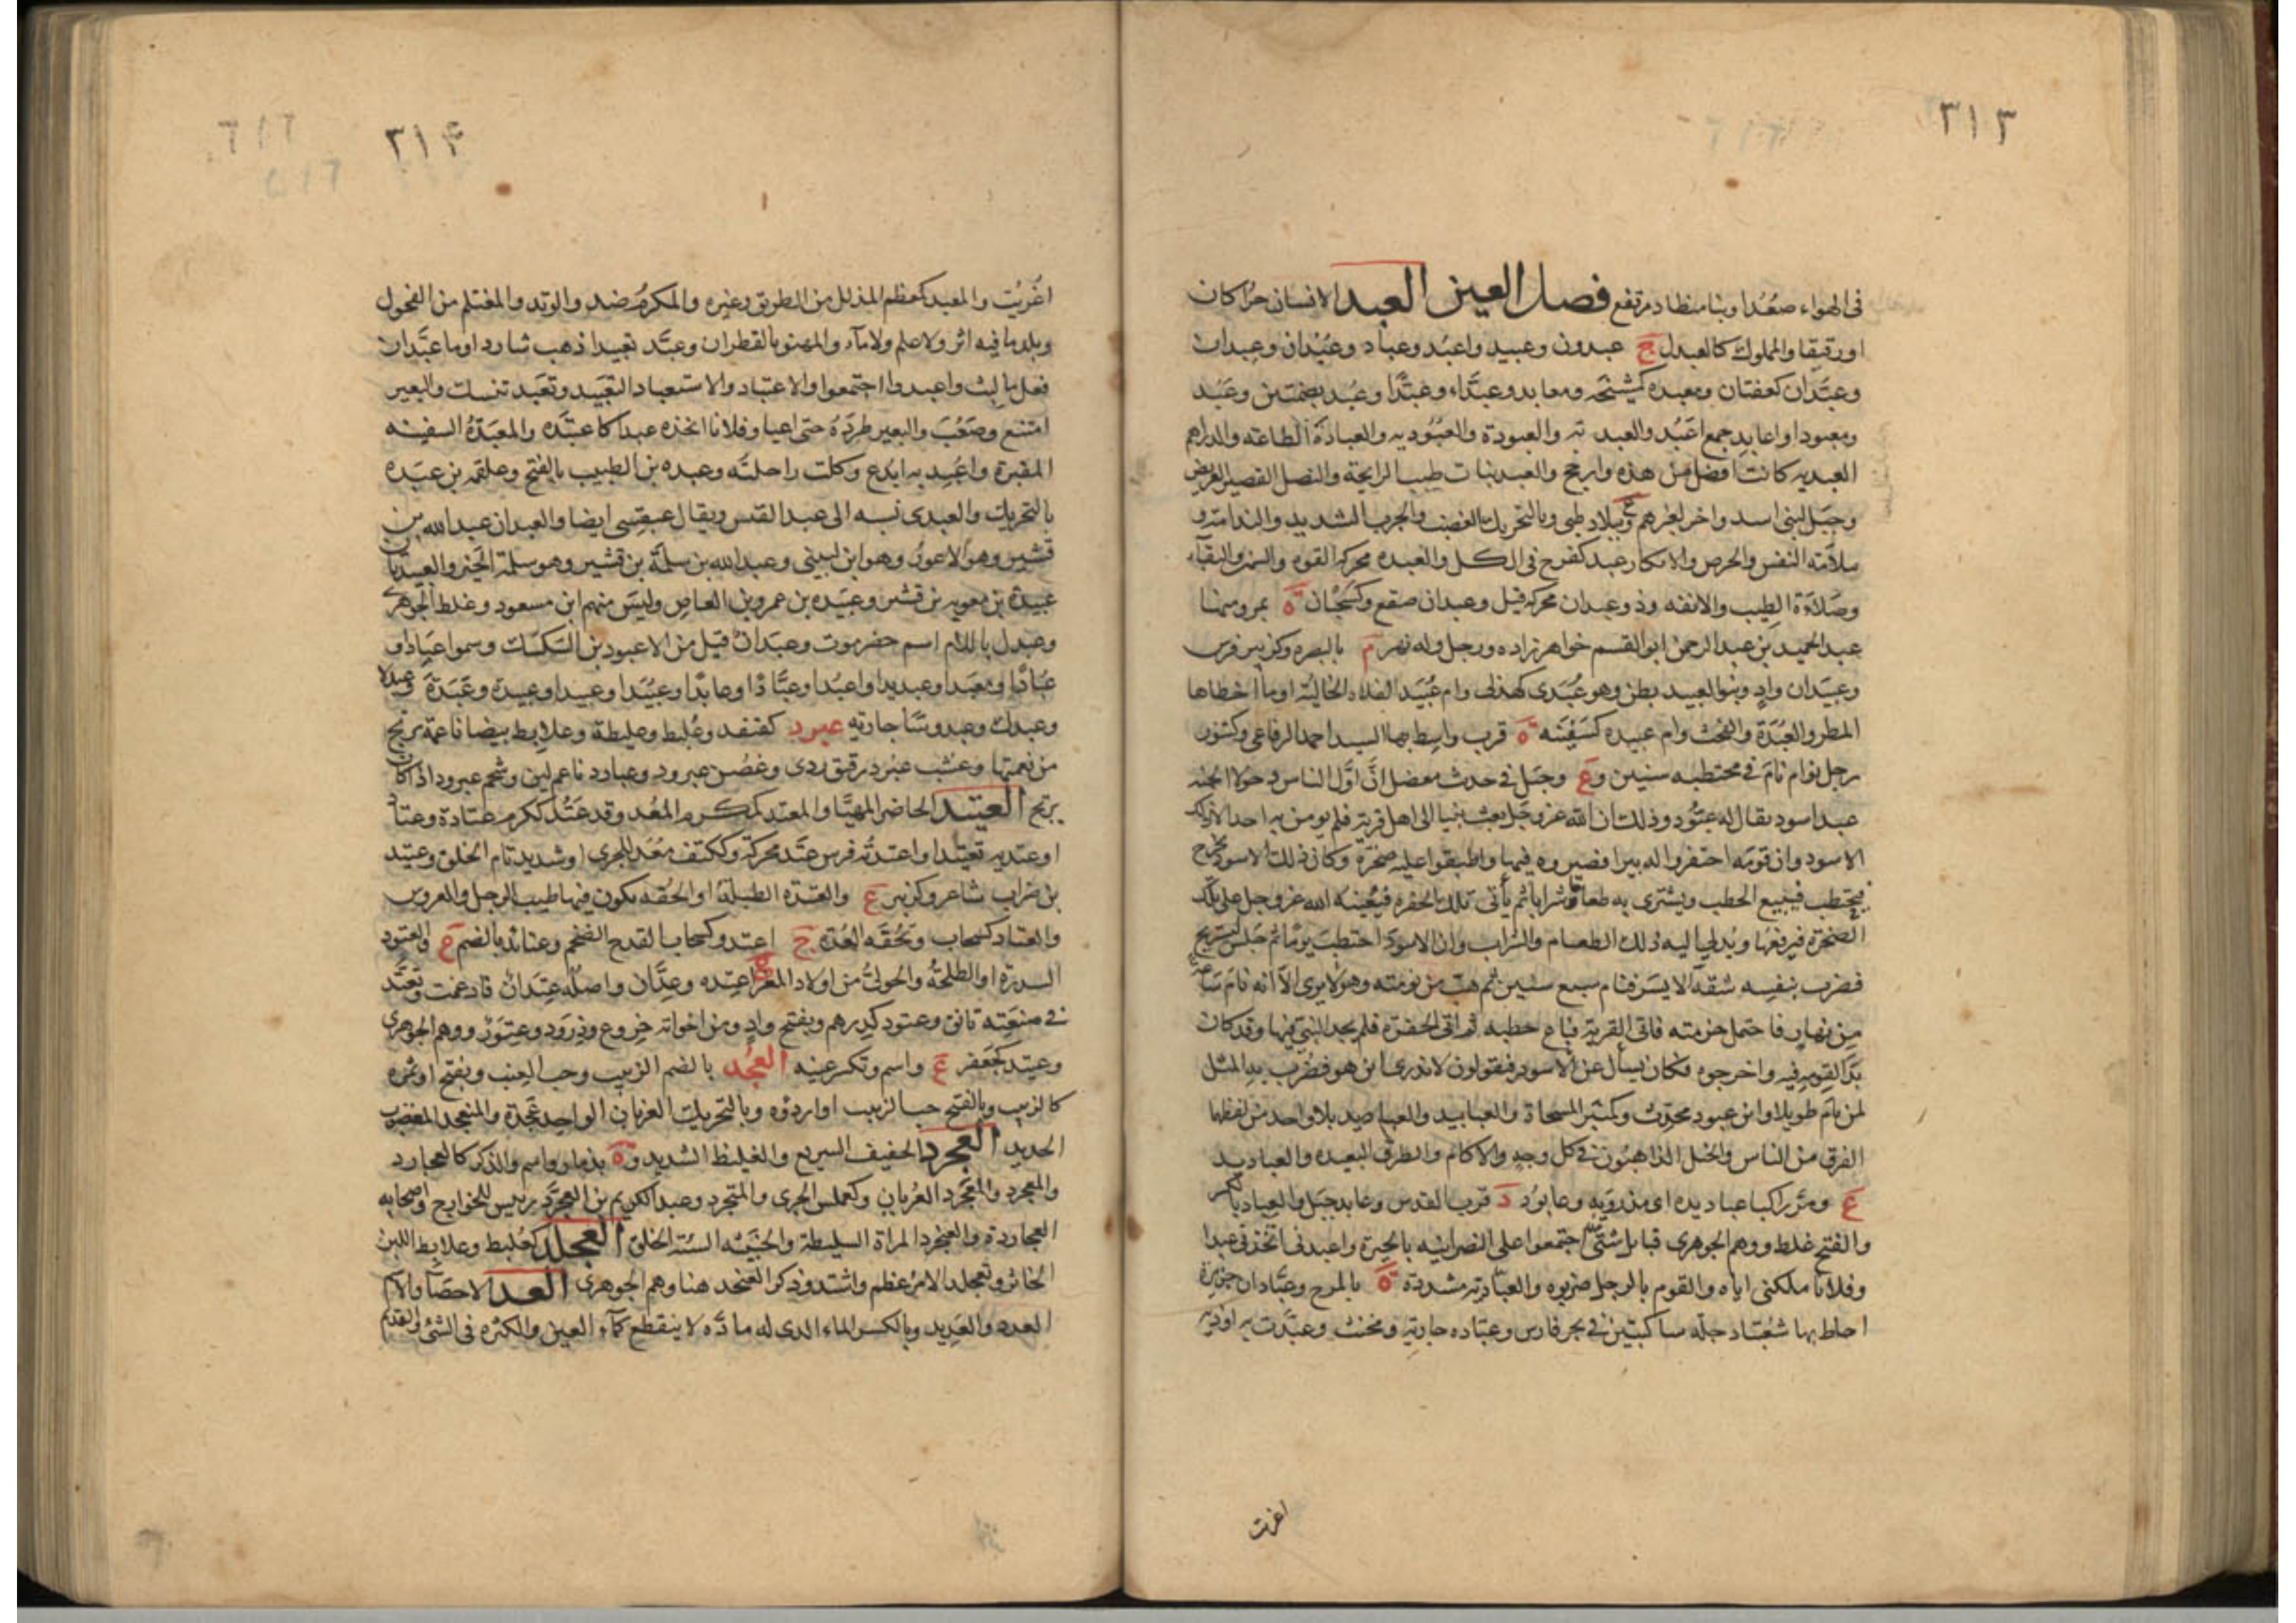 ٣١٣
في الهواء صُعُدا وبنا منطاد مرتفع فصل العين العبد الانسان حرا كان
او رقيقا والمملوك كالعبدل ج عبدون وعبيد واعبُد وعباد وعُبْدان وعِبدان
وعبَّدان كعفتان ومعبده كمشيخه ومعابد وعبدَّاء وعِبِدَّا وعُبُد بضمتين وعَبُد
ومعبودا واعابد جمع اعبُد والعبد ته والعبودة والعُبُوديه والعبادَة الطاعته والدراهم
العبديه كانت افضل من هذه وارجح والعبد نبات طيب الرايحة والنصل القصير العريض
وجبَل لبني اسد واخر لغيرهم وع ببلاد طي وبالتحريك الغضب والجرب الشديد والندامته و
ملاَمته النفس والحرص والانكار عبد كفرح في الكل والعبده محركه القوه والسمن والبقآء
وصَلاَءَة الطيب والانفه وذو عبدان محركه قيل وعبدان صقع وكسَحْبان ة بمرو منها
عبد الحميد بن عبد الرحمن ابو القسم خواهرزاده ورجل وله نهر م بالبصره وكزبير فرس
وعبَيَدان وادٍ وبنو العبيد بطن وهو عُبَدى كهذلى وام عُبَيَد الفلاه الخاليَه اوما اخطاها
المطر والعُبَدَة والفحث وام عبيده كسَفِينَه ة قرب واسِط بها السيد احمد الرفاعي وكتنور
رجل نوام نامَ في محتطبه سنيين وع وجبَل في حدث معضل انَّ اوَّل الناس دخولا الجنه
عبد اسود يقال له عبَّود وذلك ان الله عز وجَل بعث نبيا الى اهل قرية فلم يومن به احد الا ذلك
الاسود وان قومَه احتفروا له بيرا فصيروه فيها واطبقوا عليه صخرَة وكان ذلك الاسود يخرج
فيحتطب فيبيع الحطب ويشترى به طعاما وشرابا ثم يأتى تلك الحفره فيُعِينه الله عز وجل على تلك
الصخرة فيرفعها ويُدلي اليه ذلك الطعام والشراب وان الاسودَ احتطبَ يومًا ثم جَلس ليستريح
فضرب بنفسِه شقهَ الايسَر فنام سبع سنين ثم هبّ من نومته وهو لا يرى الاّ انه نامَ ساعة
من نهار فاحتمل حزمته فاتى القرية فباع حطبه ثم اتى الحفرَة فلم يجد النبيّ فيها وقد كان
بدا لقومِه فيه واخرجوه فكان يُسأل عن الاسود فيقولون لا ندرى اين هو فضُرب به المثل
لمن نامَ طويلا وابن عبود محدث وكمنبر المسحاة والعبابيد والعباديد بلا واحد من لفظها
الفرق من الناس والخيل الذاهبُون في كل وجهٍ والاكام والطرق البعيده والعباديد
ع ومَرَّ راكبا عباديده اى مذرَوَيهِ وعابوُد د قرب القدس وعابد جبَل والعِباد بالكسر
والفتح غلط ووهم الجوهرى قبايل شتّى اجتمعوا على النصرانيه بالحِيرة واعبدنى اتخذنى عبدا
وفلانا ملكنى اياه والقوم بالرجل ضربوه والعبّاديّه مشددة ة بالمرج وعبَّادان جزيرة
احاط بها شعبتا دجلة ساكبتين في بحر فارس وعبَّاده جارية ومخنث وعبَّدت به اوذيه
اغريت
٣١٤
اغريُت والمعبد كمعظم المذلل من الطريق وغيره والمكرمُ ضد والوتِد والمغتلم من الفحول
وبلد ما فيه اثر ولا علم ولا مآء والمهنو بالقطران وعبَّد تعبيدا ذهب شاردا وما عبَّد ان
فعل ما لبث واعبدوا اجتمعوا والاعتباد والاستعباد التعبيد وتعبَد تنسك والبعير
امتنع وصَعُبَ والبعير طرَدَهُ حتى اعيا وفلانا اتخذه عبدا كاعتبَّدَه والمعبَدَةُ السفينه
المقيرة واعُبِد به ابدع وكلت راحلتُه وعبده بن الطبيب بالفتح وعلقمه بن عبَده
بالتحريك والعبدى نسبه الى عبد القيس ويقال عبقسِى ايضا والعبدان عبد الله بن
قشير وهو الاعورُ وهو ابن لبينى وعبد الله بن سلمَة بن قشير وهو سلمة الخير والعبيدتان
عبيدة بن معويه بن قشير وعبَيده بن عمرو بن العاص وليسَ منهم ابن مسعود وغلط الجوهرى
وعبدل باللام اسم حضرموت وعبدَان قيل من الاعبود بن السَكسَك وسموا عِبَادا و
عُبَادا ومعبَدا وعبديدا واعبُدا وعبَّادًا وعابدًا وعبُيَدا وعبيدا وعبيدة وعَبَدَة وعبدلا
وعبدك وعبدوسا جاريه عبرد كقنفد وعُلبط وعلبطة وعلابط بيضا ناعمة ترتج
من نعمتها وعشب عبرد رقيق ردى وغصُن عبرود وعبارد ناعم لين وشحم عبرود اذا كان
يرتج العتيد الحاضر المهيَّا والمعتد كمكرم المُعَد وقد عَتُد ككرم عتادة وعتادا
او عتديه تعتيدا واعتدتُه فرس عتَد محركة وككتف مُعَد للجرى او شديد تام الخلق وعتيد
بن ضراب شاعر وكزبير ع والعتدَه الطبلةُ او الحُقه يكون فيها طيب الرجل والعروس
والعتاد كسَحاب وتحُفَه العُدَّة ج اعتد وكسحاب القدح الضخم وعتائد بالضم ع والعتود
السدرَة او الطلحة والحوليُ من اولاد المعز ج اعتده وعِدَّان واصلُه عتَدان فادغمت وتعتَّد
في صنعَتِه تانق وعتود كدرهم ويفتح وادٍ ومن اخواته خِروع وذِروَد وعِتوَرٌ ووهم الجوهرى
وعتيد كجَعفر ع واسم وتكسر عينه العُجُد بالضم الزبيب وحب العِنب ويُفتح او ثمره
كالزبيب وبالفتح حب الزبيب او اردؤه وبالتحريك الغربان الواحد عَجَدة والمتعجد المغضوب
الحديد العجرد الخفيف السريع والغليظ الشديد وة بذمار واسم والذكر كالعجارد
والمعجرد والمُعَجرَد العُريان وكعملس الجرى والمتجرد وعبد الكريم بن العجرَّد رييس للخوارج واصحابه
العجاردة والعنجرد المراة السليطة والخبيثه السئه الخلق العجلد كعلبط وعلابط اللبن
الخاثر وتعجلد الامر عظم واشتد وذكر العنجد هنا وهم الجوهرى العد الاحصَآ والاسم
العدد والعَدِيد وبالكسر الماء الذى له مادَّه لا ينقطع كمآء العين والكثرَه فى الشى والقديم